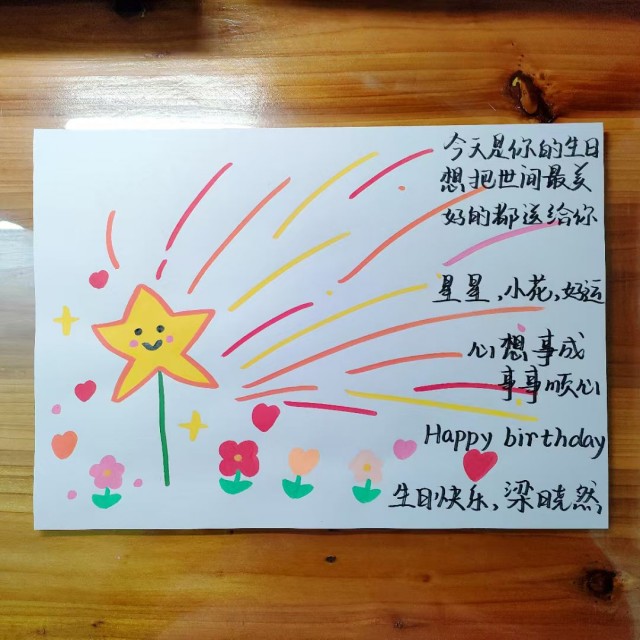 今天是你的生日
想把世间最美
好的都送给你
星星,小花,好运
心想事成
事事顺心
Happy birthday
生日快乐,梁晓然